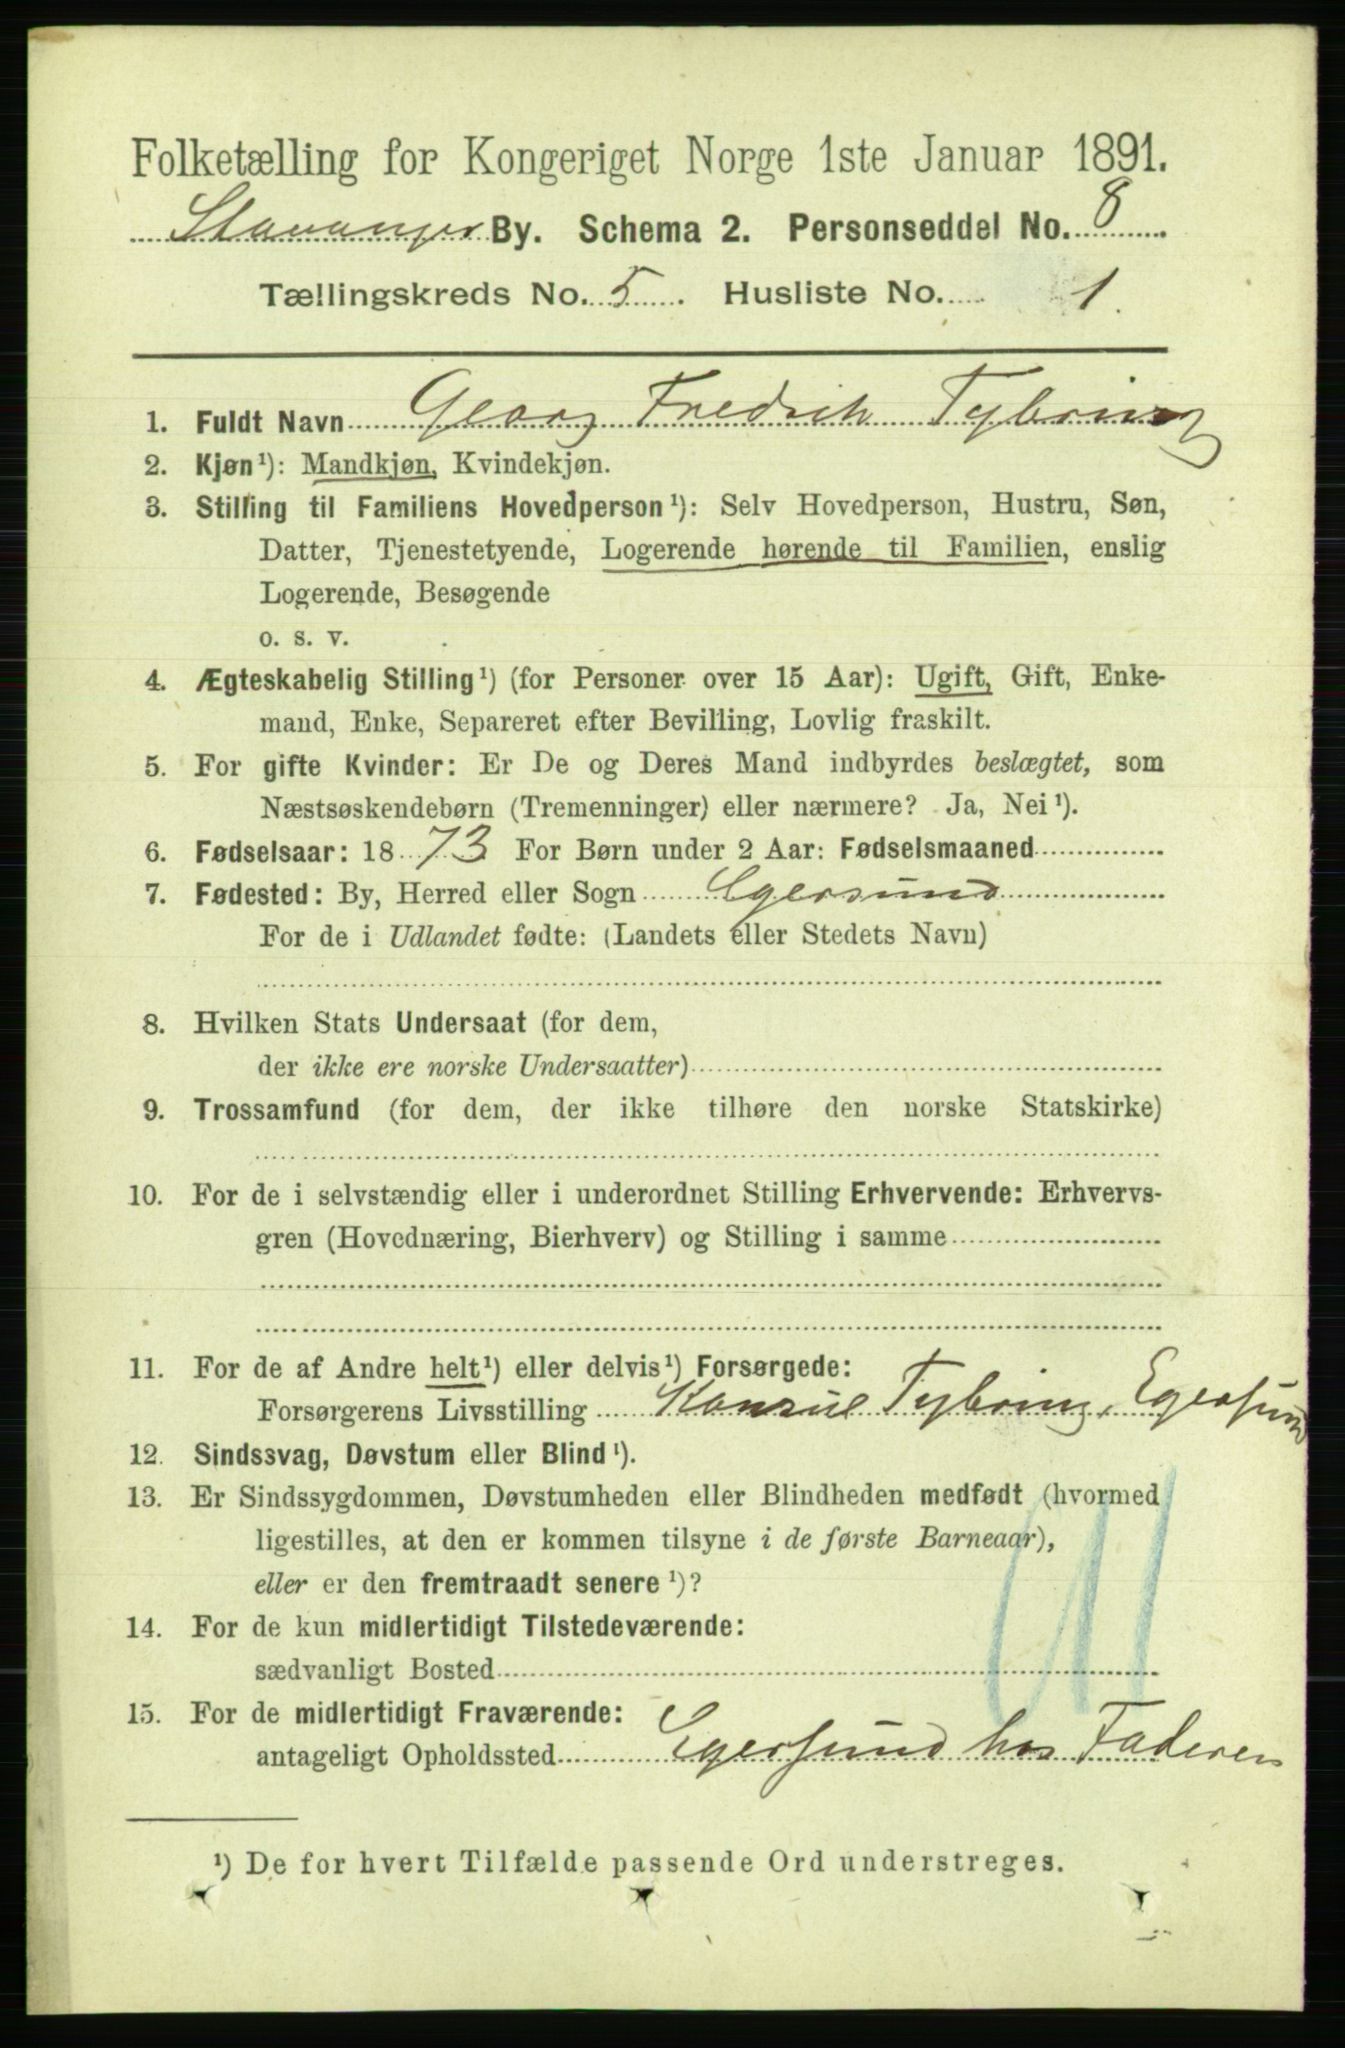 Folketælling for Kongeriget Norge 1ste Januar 1891.
Stavanger By. Schema 2. Personseddel No. 8
Tællingskreds No. 5. Husliste No. 1.
1. Fuldt Navn Georg Fredrik Tybring
2. Kjøn¹): Mandkjøn, Kvindekjøn.
3. Stilling til Familiens Hovedperson¹): Selv Hovedperson, Hustru, Søn,
Datter, Tjenestetyende, Logerende hørende til Familien, enslig
Logerende, Besøgende
o. s. v.
4. Ægteskabelig Stilling¹) (for Personer over 15 Aar): Ugift, Gift, Enke-
mand, Enke, Separeret efter Bevilling, Lovlig fraskilt.
5. For gifte Kvinder: Er De og Deres Mand indbyrdes beslægtet, som
Næstsøskendebørn (Tremenninger) eller nærmere? Ja, Nei¹).
6. Fødselsaar: 1873 For Børn under 2 Aar: Fødselsmaaned
7. Fødested: By, Herred eller Sogn Egersund
For de i Udlandet fødte: (Landets eller Stedets Navn)
8. Hvilken Stats Undersaat (for dem,
der ikke ere norske Undersaatter)
9. Trossamfund (for dem, der ikke tilhøre den norske Statskirke)
10. For de i selvstændig eller i underordnet Stilling Erhvervende: Erhvervs-
gren (Hovednæring, Bierhverv) og Stilling i samme
11. For de af Andre helt¹) eller delvis¹) Forsørgede:
Forsørgerens Livsstilling Konsul Tybring, Egersund
12. Sindssvag, Døvstum eller Blind¹).
13. Er Sindssygdommen, Døvstumheden eller Blindheden medfødt (hvormed
ligestilles, at den er kommen tilsyne i de første Barneaar),
eller er den fremtraadt senere¹)?
14. For de kun midlertidigt Tilstedeværende:
sædvanligt Bosted
15. For de midlertidigt Fraværende:
antageligt Opholdssted Egersund hos Faderen
¹) De for hvert Tilfælde passende Ord understreges.